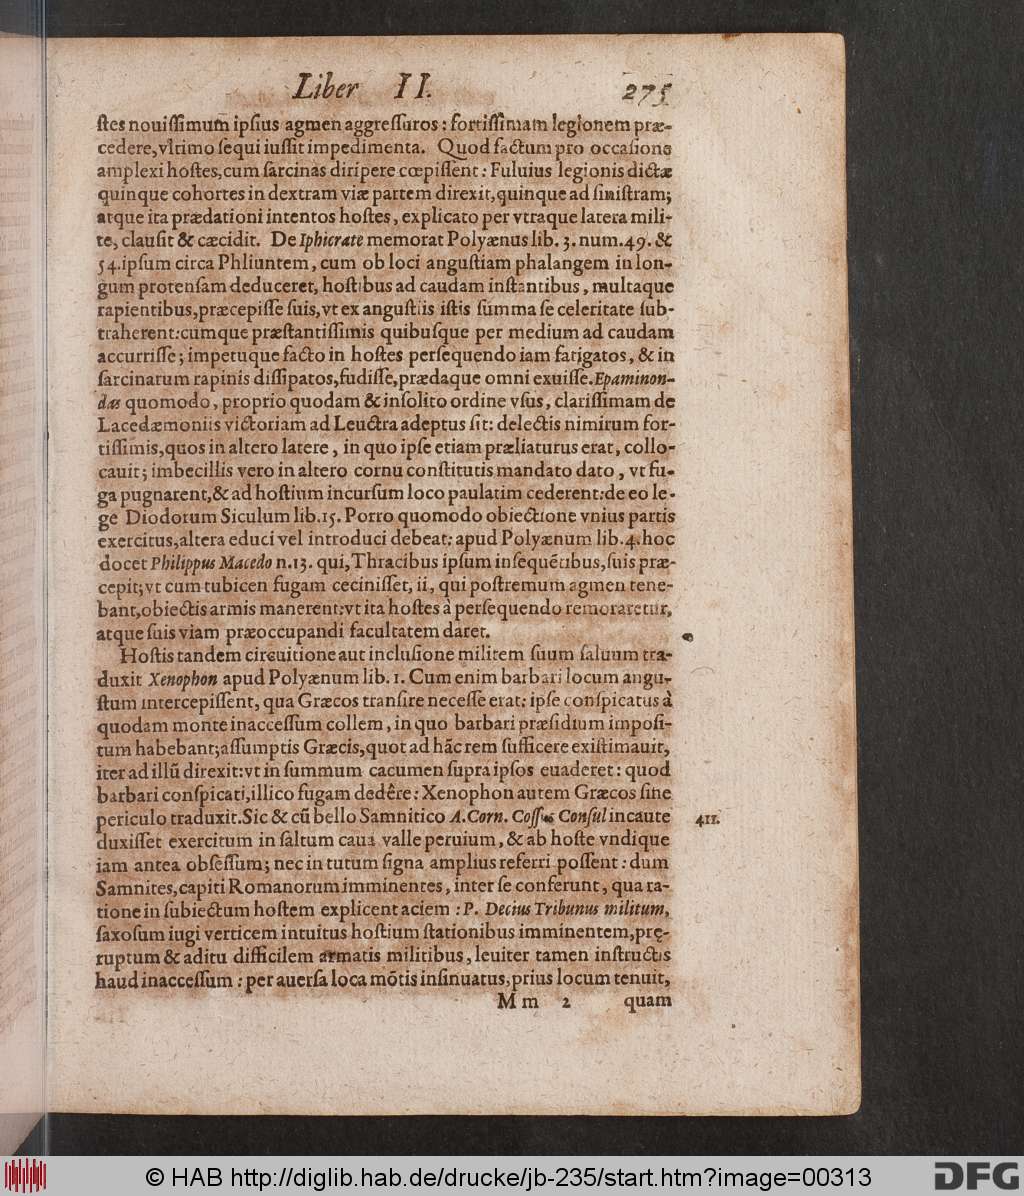 Liber II. 275
ſtes nouiſſimum ipſius agmen aggreſſuros : fortiſſimam legionem præ-
cedere, vltimo ſequi iuſſit impedimenta. Quod factum pro occaſione
amplexi hoſtes, cum ſarcinas diripere cœpiſſent : Fuluius legionis dictæ
quinque cohortes in dextram viæ partem direxit, quinque ad ſiniſtram;
atque ita prædationi intentos hoſtes, explicato per vtraque latera mili-
te, clauſit & cæcidit. De Iphicrate memorat Polyænus lib. 3. num. 49. &
54. ipſum circa Phliuntem, cum ob loci anguſtiam phalangem in lon-
gum protenſam deduceret, hoſtibus ad caudam inſtantibus, multaque
rapientibus, præcepiſſe ſuis, vt ex anguſtiis iſtis ſumma ſe celeritate ſub-
traherent: cumque præſtantiſſimis quibuſque per medium ad caudam
accurriſſe; impetuque facto in hoſtes perſequendo iam fatigatos, & in
ſarcinarum rapinis diſſipatos, fudiſſe, prædaque omni exuiſſe. Epaminon-
das quomodo, proprio quodam & inſolito ordine vſus, clariſſimam de
Lacedæmoniis victoriam ad Leuctra adeptus ſit: delectis nimirum for-
tiſſimis, quos in altero latere, in quo ipſe etiam præliaturus erat, collo-
cauit; imbecillis vero in altero cornu conſtitutis mandato dato, vt fu-
ga pugnarent, & ad hoſtium incurſum loco paulatim cederent: de eo le-
ge Diodorum Siculum lib. 15. Porro quomodo obiectione vnius partis
exercitus, altera educi vel introduci debeat: apud Polyænum lib. 4. hoc
docet Philippus Macedo n. 13. qui, Thracibus ipſum inſequētibus, ſuis præ-
cepit; vt cum tubicen fugam ceciniſſet, ii, qui poſtremum agmen tene-
bant, obiectis armis manerent: vt ita hoſtes à perſequendo remoraretur,
atque ſuis viam præoccupandi facultatem daret.
Hoſtis tandem circuitione aut incluſione militem ſuum ſaluum tra-
duxit Xenophon apud Polyænum lib. 1. Cum enim barbari locum angu-
ſtum intercepiſſent, qua Græcos tranſire neceſſe erat: ipſe conſpicatus à
quodam monte inacceſſum collem, in quo barbari præſidium impoſi-
tum habebant; aſſumptis Græcis, quot ad hãc rem ſufficere exiſtimauit,
iter ad illũ direxit: vt in ſummum cacumen ſupra ipſos euaderet : quod
barbari conſpicati, illico fugam dedêre : Xenophon autem Græcos ſine
periculo traduxit. Sic & cũ bello Samnitico A. Corn. Coſſus Conſul incaute 411.
duxiſſet exercitum in ſaltum caua valle peruium, & ab hoſte vndique
iam antea obſeſſum; nec in tutum ſigna amplius referri poſſent : dum
Samnites, capiti Romanorum imminentes, inter ſe conferunt, qua ra-
tione in ſubiectum hoſtem explicent aciem : P. Decius Tribunus militum,
ſaxoſum iugi verticem intuitus hoſtium ſtationibus imminentem, pre̜-
ruptum & aditu difficilem armatis militibus, leuiter tamen inſtructis
haud inacceſſum : per auerſa loca mõtis inſinuatus, prius locum tenuit,
M m 2 quam
© HAB http://diglib.hab.de/drucke/jb-235/start.htm?image=00313
DFG